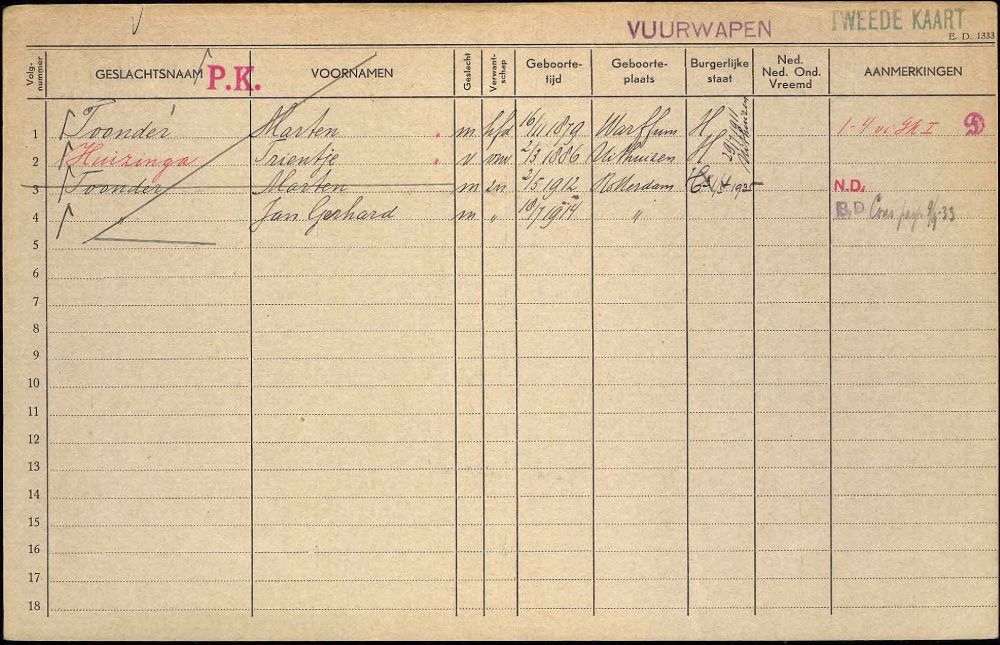 VUURWAPEN TWEEDE KAART
E. D. 1333
Volg-nummer GESLACHTSNAAM P.K. VOORNAMEN Geslacht Verwant-schap Geboorte-tijd Geboorte-plaats Burgerlijke staat Ned. Ned. Ond. Vreemd AANMERKINGEN
1 Toonder Marten m hfd 16/11 1879 Warffum H 29/4 1911 Uithuizen 1-4
2 Huizinga Trientje v vrw 2/3 1886 Uithuizen H
3 Toonder Marten m zn 2/5 1912 Rotterdam N.D.
4 " Jan Gerhard m " 10/7 1914 " B.D. 9/9-33
5
6
7
8
9
10
11
12
13
14
15
16
17
18